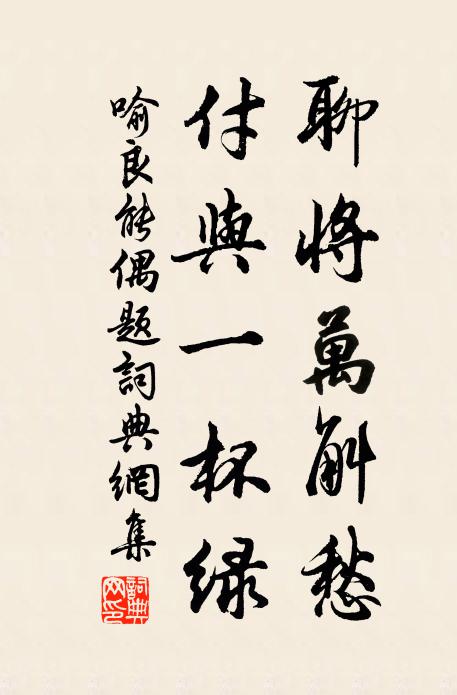 聊將萬斛愁
付與一杯绿
喻良能偶题詞典網集
詞典網印